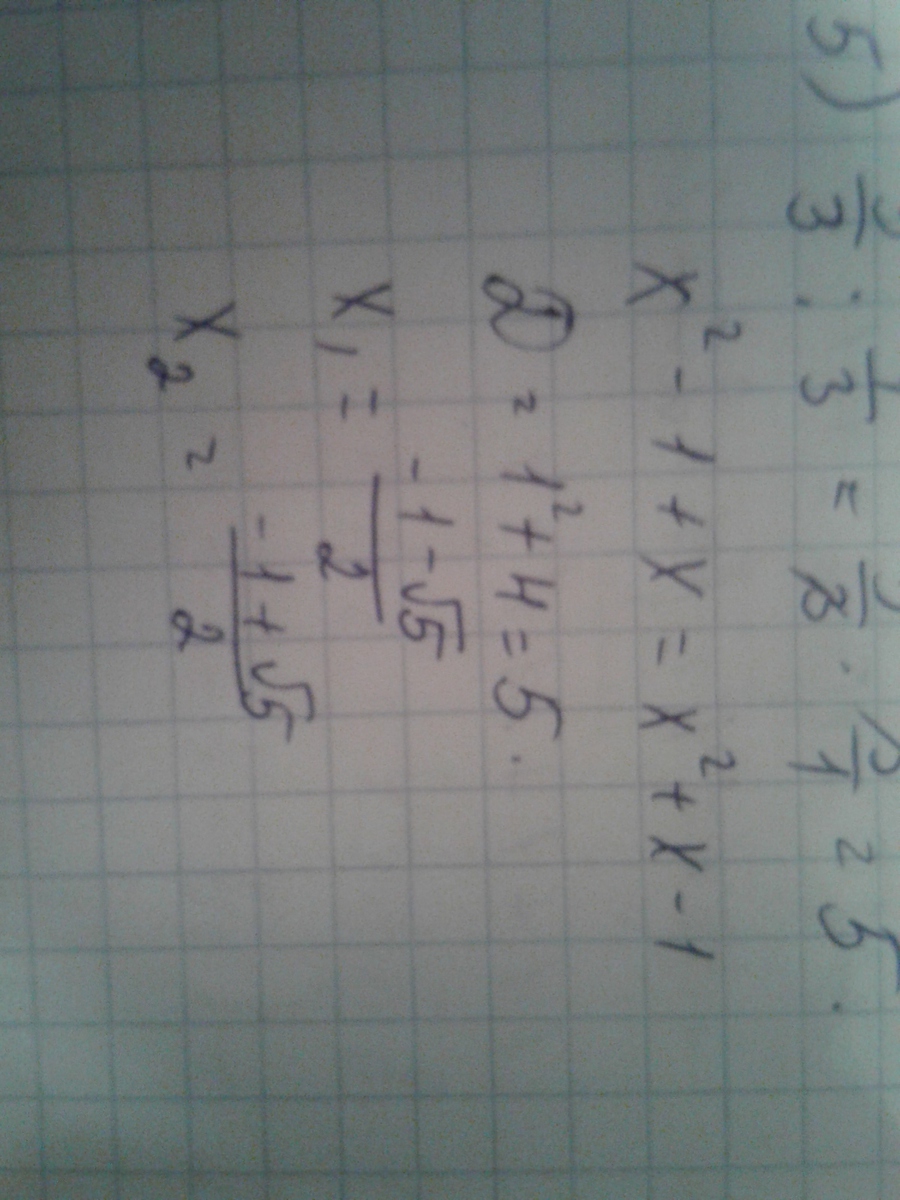 5) 5/3 : 1/3 = 5/3 · 3/1 = 5.
x² - 1 + x = x² + x - 1
D = 1² + 4 = 5.
x₁ = (-1-√5)/2
x₂ = (-1+√5)/2